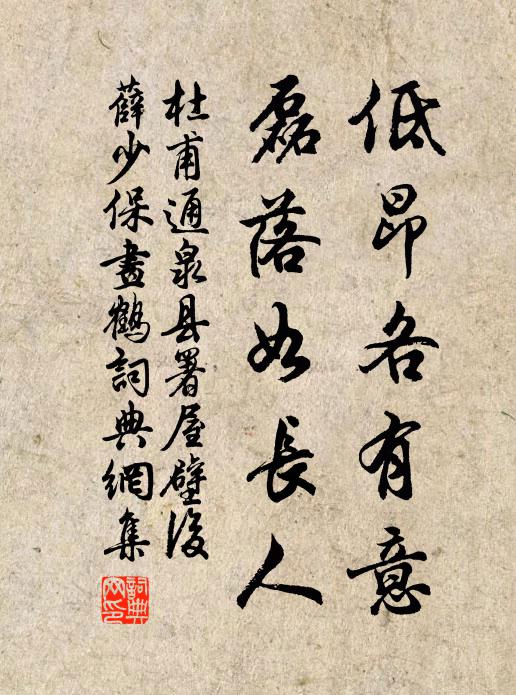 低昂各有意
磊落如長人
杜甫通泉县署屋壁後
薛少保畫鶴詞典網集
詞典網印